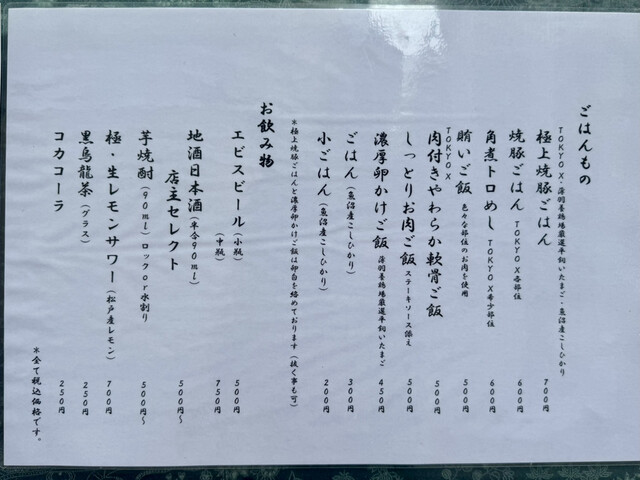 ごはんもの
極上焼豚ごはん 700円
TOKYO X・薄羽養鶏場厳選平飼いたまご・魚沼産こしひかり
焼豚ごはん TOKYO X各部位 600円
角煮トロめし TOKYO X希少部位 600円
賄いご飯 色々な部位のお肉を使用 500円
TOKYO X
肉付きやわらか軟骨ご飯 500円
しっとりお肉ご飯 ステーキソース添え 500円
濃厚卵かけご飯 薄羽養鶏場厳選平飼いたまご 450円
ごはん(魚沼産こしひかり) 300円
小ごはん(魚沼産こしひかり) 200円
*極上焼豚ごはんと濃厚卵かけご飯は卵白を絡めております(抜く事も可)
お飲み物
エビスビール(小瓶) 500円
(中瓶) 750円
地酒日本酒(半合90ml)
店主セレクト 500円〜
芋焼酎(90ml)ロックor水割り 500円〜
極・生レモンサワー(松戸産レモン) 700円
黒烏龍茶(グラス) 250円
コカコーラ 250円
*全て税込価格です。